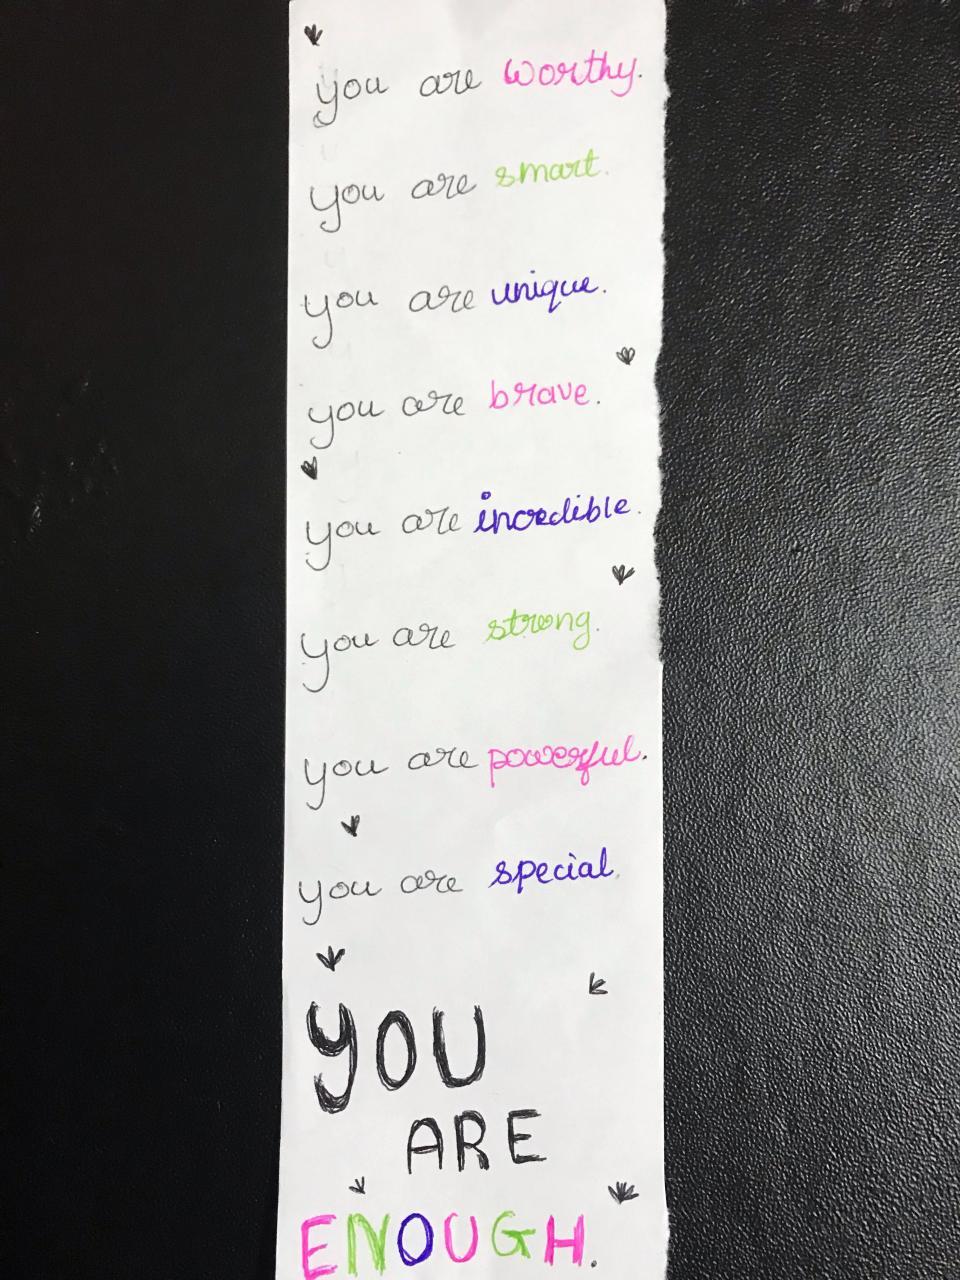 you are worthy.
you are smart.
you are unique.
you are brave.
you are incredible.
you are strong.
you are powerful.
you are special.
YOU
ARE
ENOUGH.